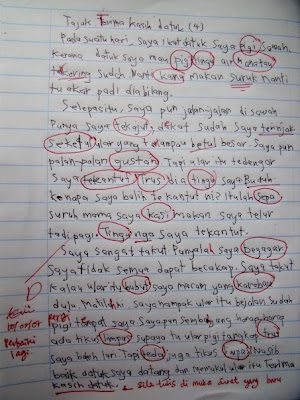 Tajak Terima kasih datuk (4)
Pada suatu hari, Saya ikut datuk Saya Pigi sawah.
kerana datuk saya mau pigi kingi air. Manatau
takering sudah Nanti kana makan suruk nanti
tu akar padi dia bilang.
Selepas itu, Saya pun jalan-jalan di sawah
Punya saya tekajut, dekat sudah Saya terpijak
Seketul ular yang talampau betul besar. Saya pun
palan-palan gustan. Tapi ular itu tedengar
Saya tekantut. Trus dia tingo saya. Buduh
kenapa saya bulih tekantut ni? Itulah Sepa
suruh mama saya kasi makan saya telur
tadi pagi. Tinggu nga saya tekantut.
Saya sangat takut Punyalah saya Degagar
Saya tidak semua dapat becakap. Saya takut
kalau ular itu bubut saya macam yang karabau
dulu. Mati bini. Saya nampak ular itu bejalan sudah
pigi tempat saya. Saya pun Sembayang harap-harap
ada tikus limpas supaya tu ular pigi tangkap. Trus
saya buleh lari. Tapi teda juga tikus lupas. Nasib
baik datuk saya datang dan memukul ular itu. Terima
kasih datuk.
Perbaiki
lagi.
Pergi
* Sila tulis di muka surat yang baru